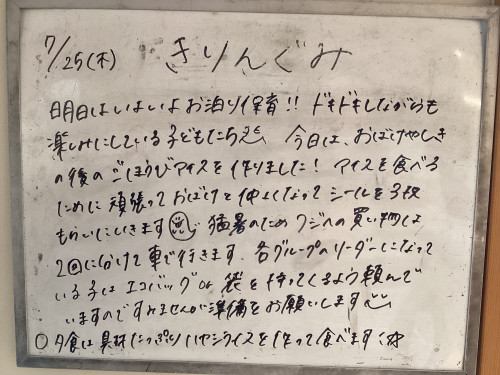 7/25(木) きりんぐみ
明日はいよいよお泊り保育!! ドキドキしながらも
楽しみにしている子どもたち 今日は、おばけやしき
の後のごほうびアイスを作りました! アイスを食べる
ために頑張っておばけと仲よくなってシールを3枚
もらいにいきます 猛暑のためフジへの買い物は
2回に分けて車で行きます。各グループのリーダーになって
いる子はエコバッグor袋を持ってくるよう頼んで
いますのですみませんが準備をお願いします
○夕食は具材たっぷりハヤシライスを作って食べます☆